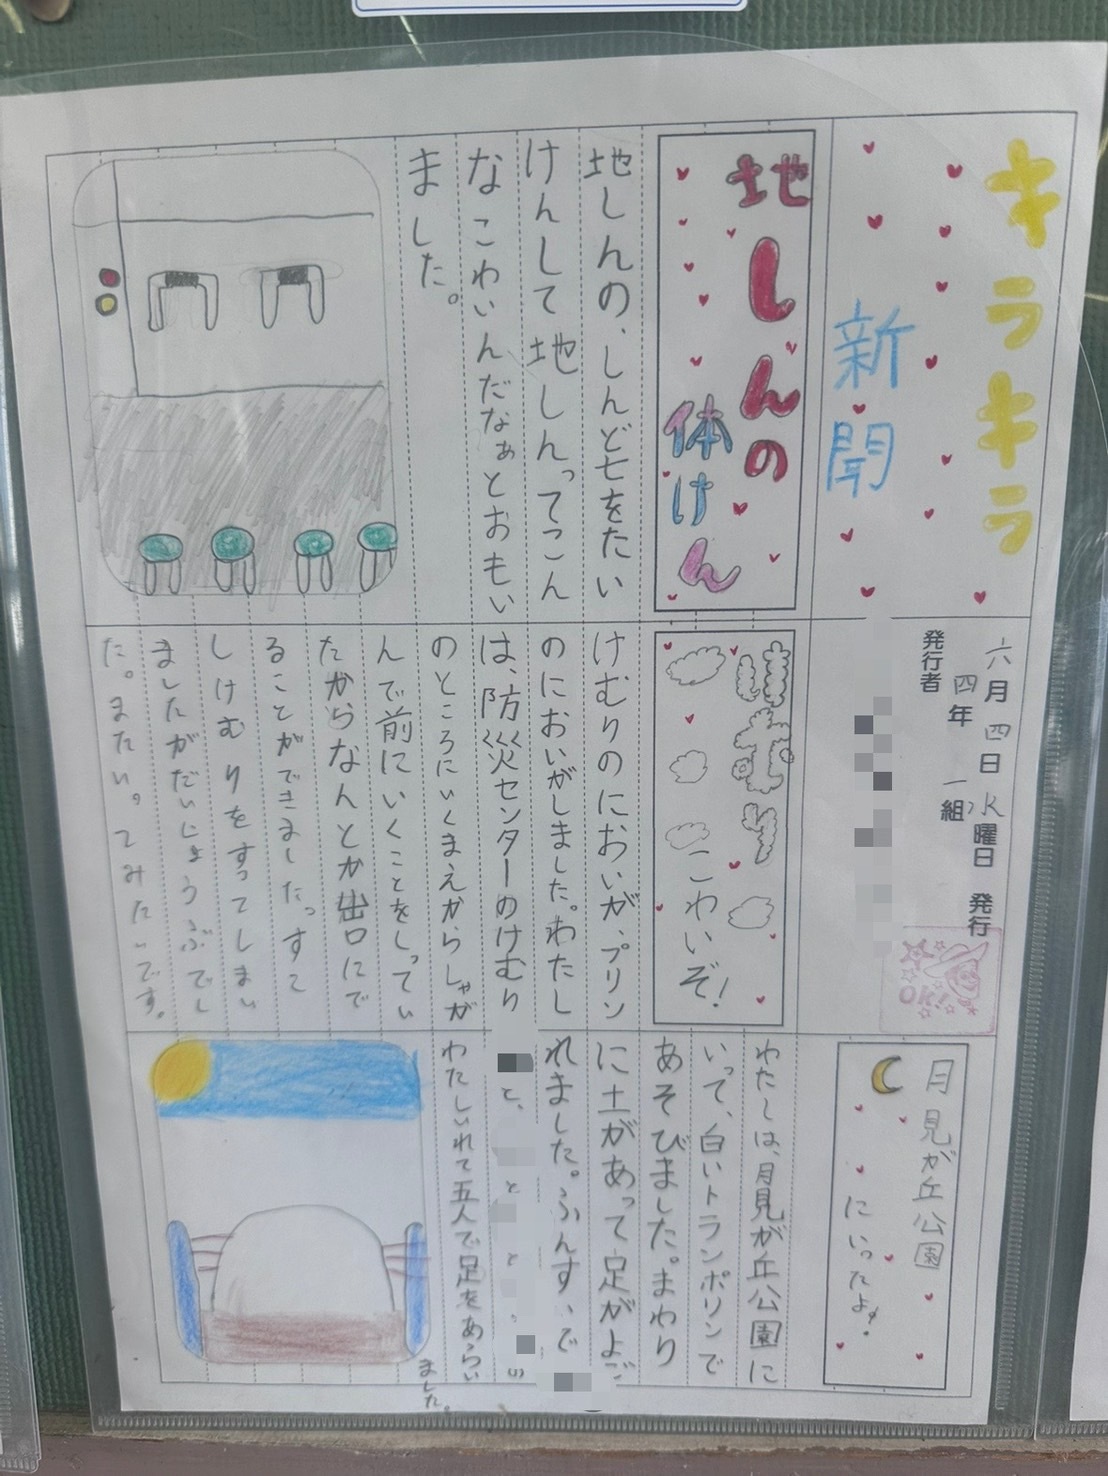 キラキラ
新聞
六月四日水曜日 発行
四年 一組
発行者
OK!
地しんの
体けん
地しんの、しんど七をたい
けんして地しんってこん
なこわいんだなぁとおもい
ました。
けむり
こわいぞ!
けむりのにおいが、プリン
のにおいがしました。わたし
は、防災センターのけむり
のところにいくまえからしゃが
んで前にいくことをしってい
たからなんとか出口にで
ることができました。すこ
しけむりをすってしまい
ましたがだいじょうぶでし
た。またいってみたいです。
月見が丘公園
にいったよ!
わたしは、月見が丘公園に
いって、白いトランポリンで
あそびました。まわり
に土があって足がよご
れました。ふんすいで
と、
と
と
わたしいれて五人で足をあらい
ました。